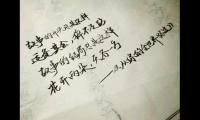 故事的开头总是这样
适逢其会，猝不及防
故事的结局总是这样
花开两朵，天各一方
——《从你的全世界路过》